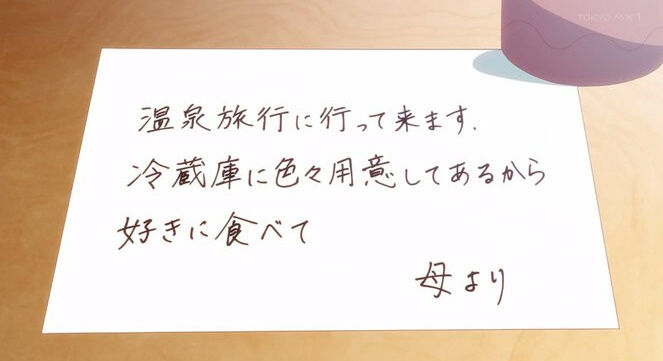 TOKYO MX 1
温泉旅行に行って来ます.
冷蔵庫に色々用意してあるから
好きに食べて
母より